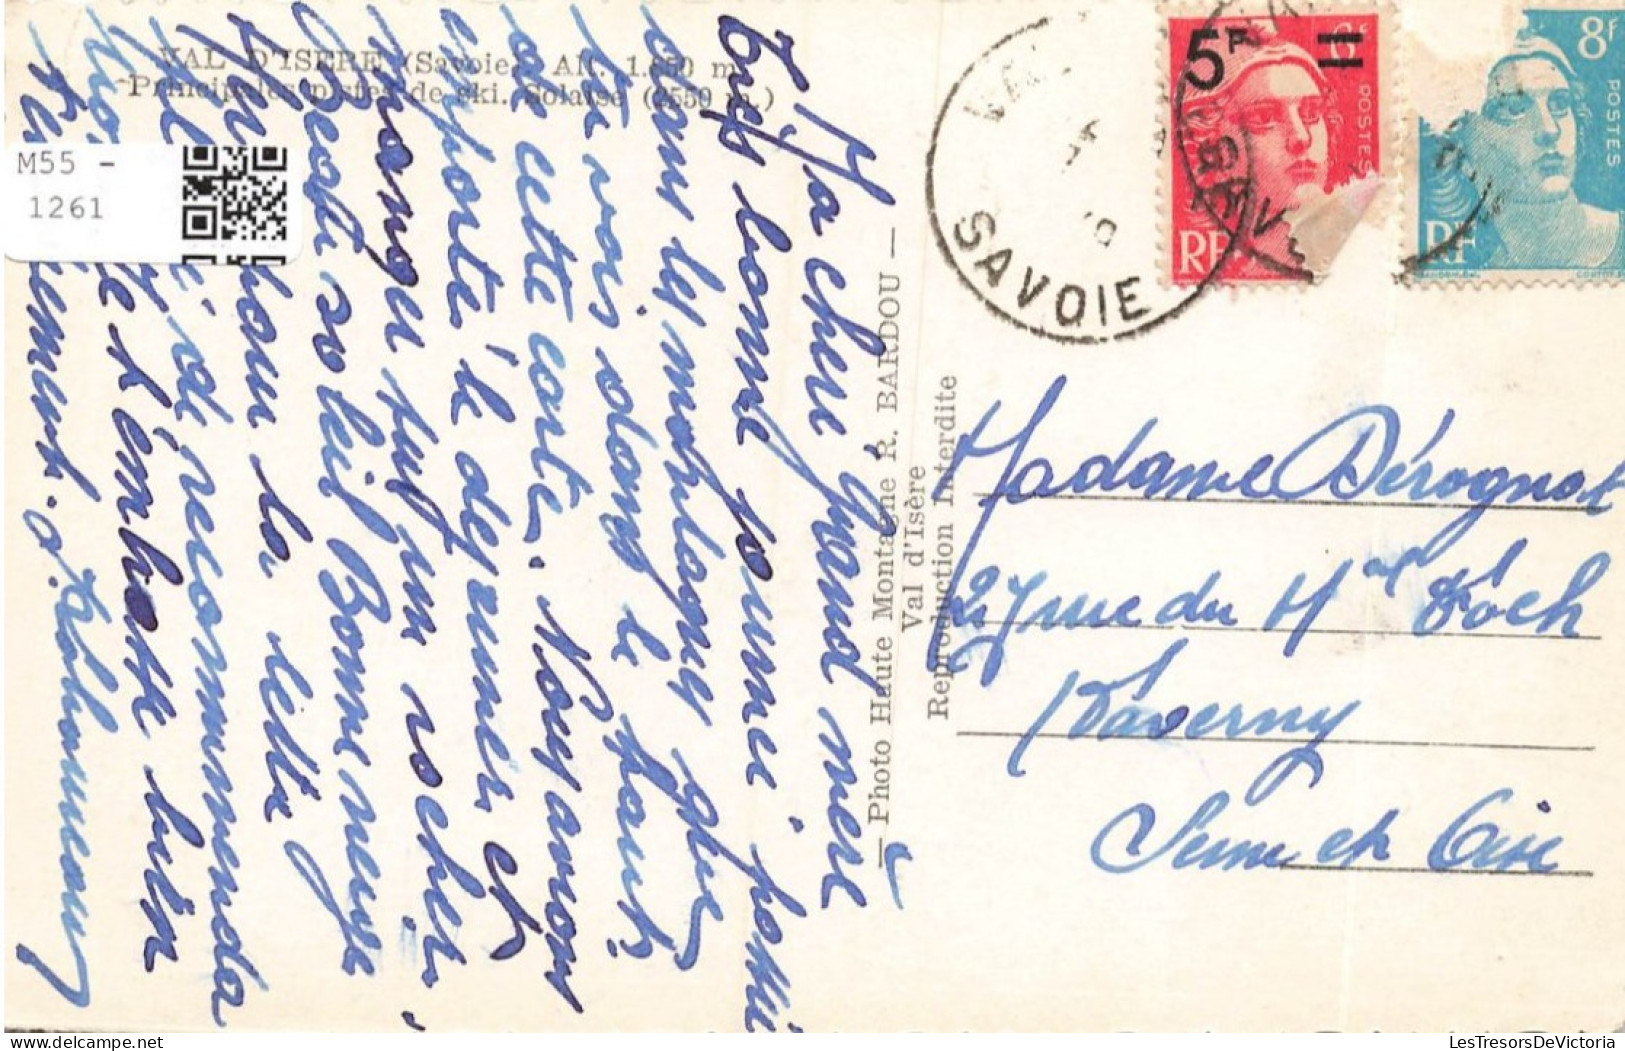 VAL D'ISERE (Savoie) Alt. 1.850 m.
Principales pistes de ski. Solaise (2550 m.)
M55 -
1261
Ma chère grand mère
Très bonne journée
dans les montagnes que
tu vois dans le haut
de cette carte. Nous avons
emporté le déjeuner et
manger sur un rocher,
Beau soleil Bonne neige
pour la lettre
de recommanda
Je t'embrasse bien
— Photo Haute Montagne R. BARDOU —
Val d'Isère
Reproduction Interdite
SAVOIE
5F
POSTES
RF
8F
POSTES
RF
Madame Dérognat
27 rue du Mal Foch
Taverny
Seine et Oise
LesTresorsDeVictoria